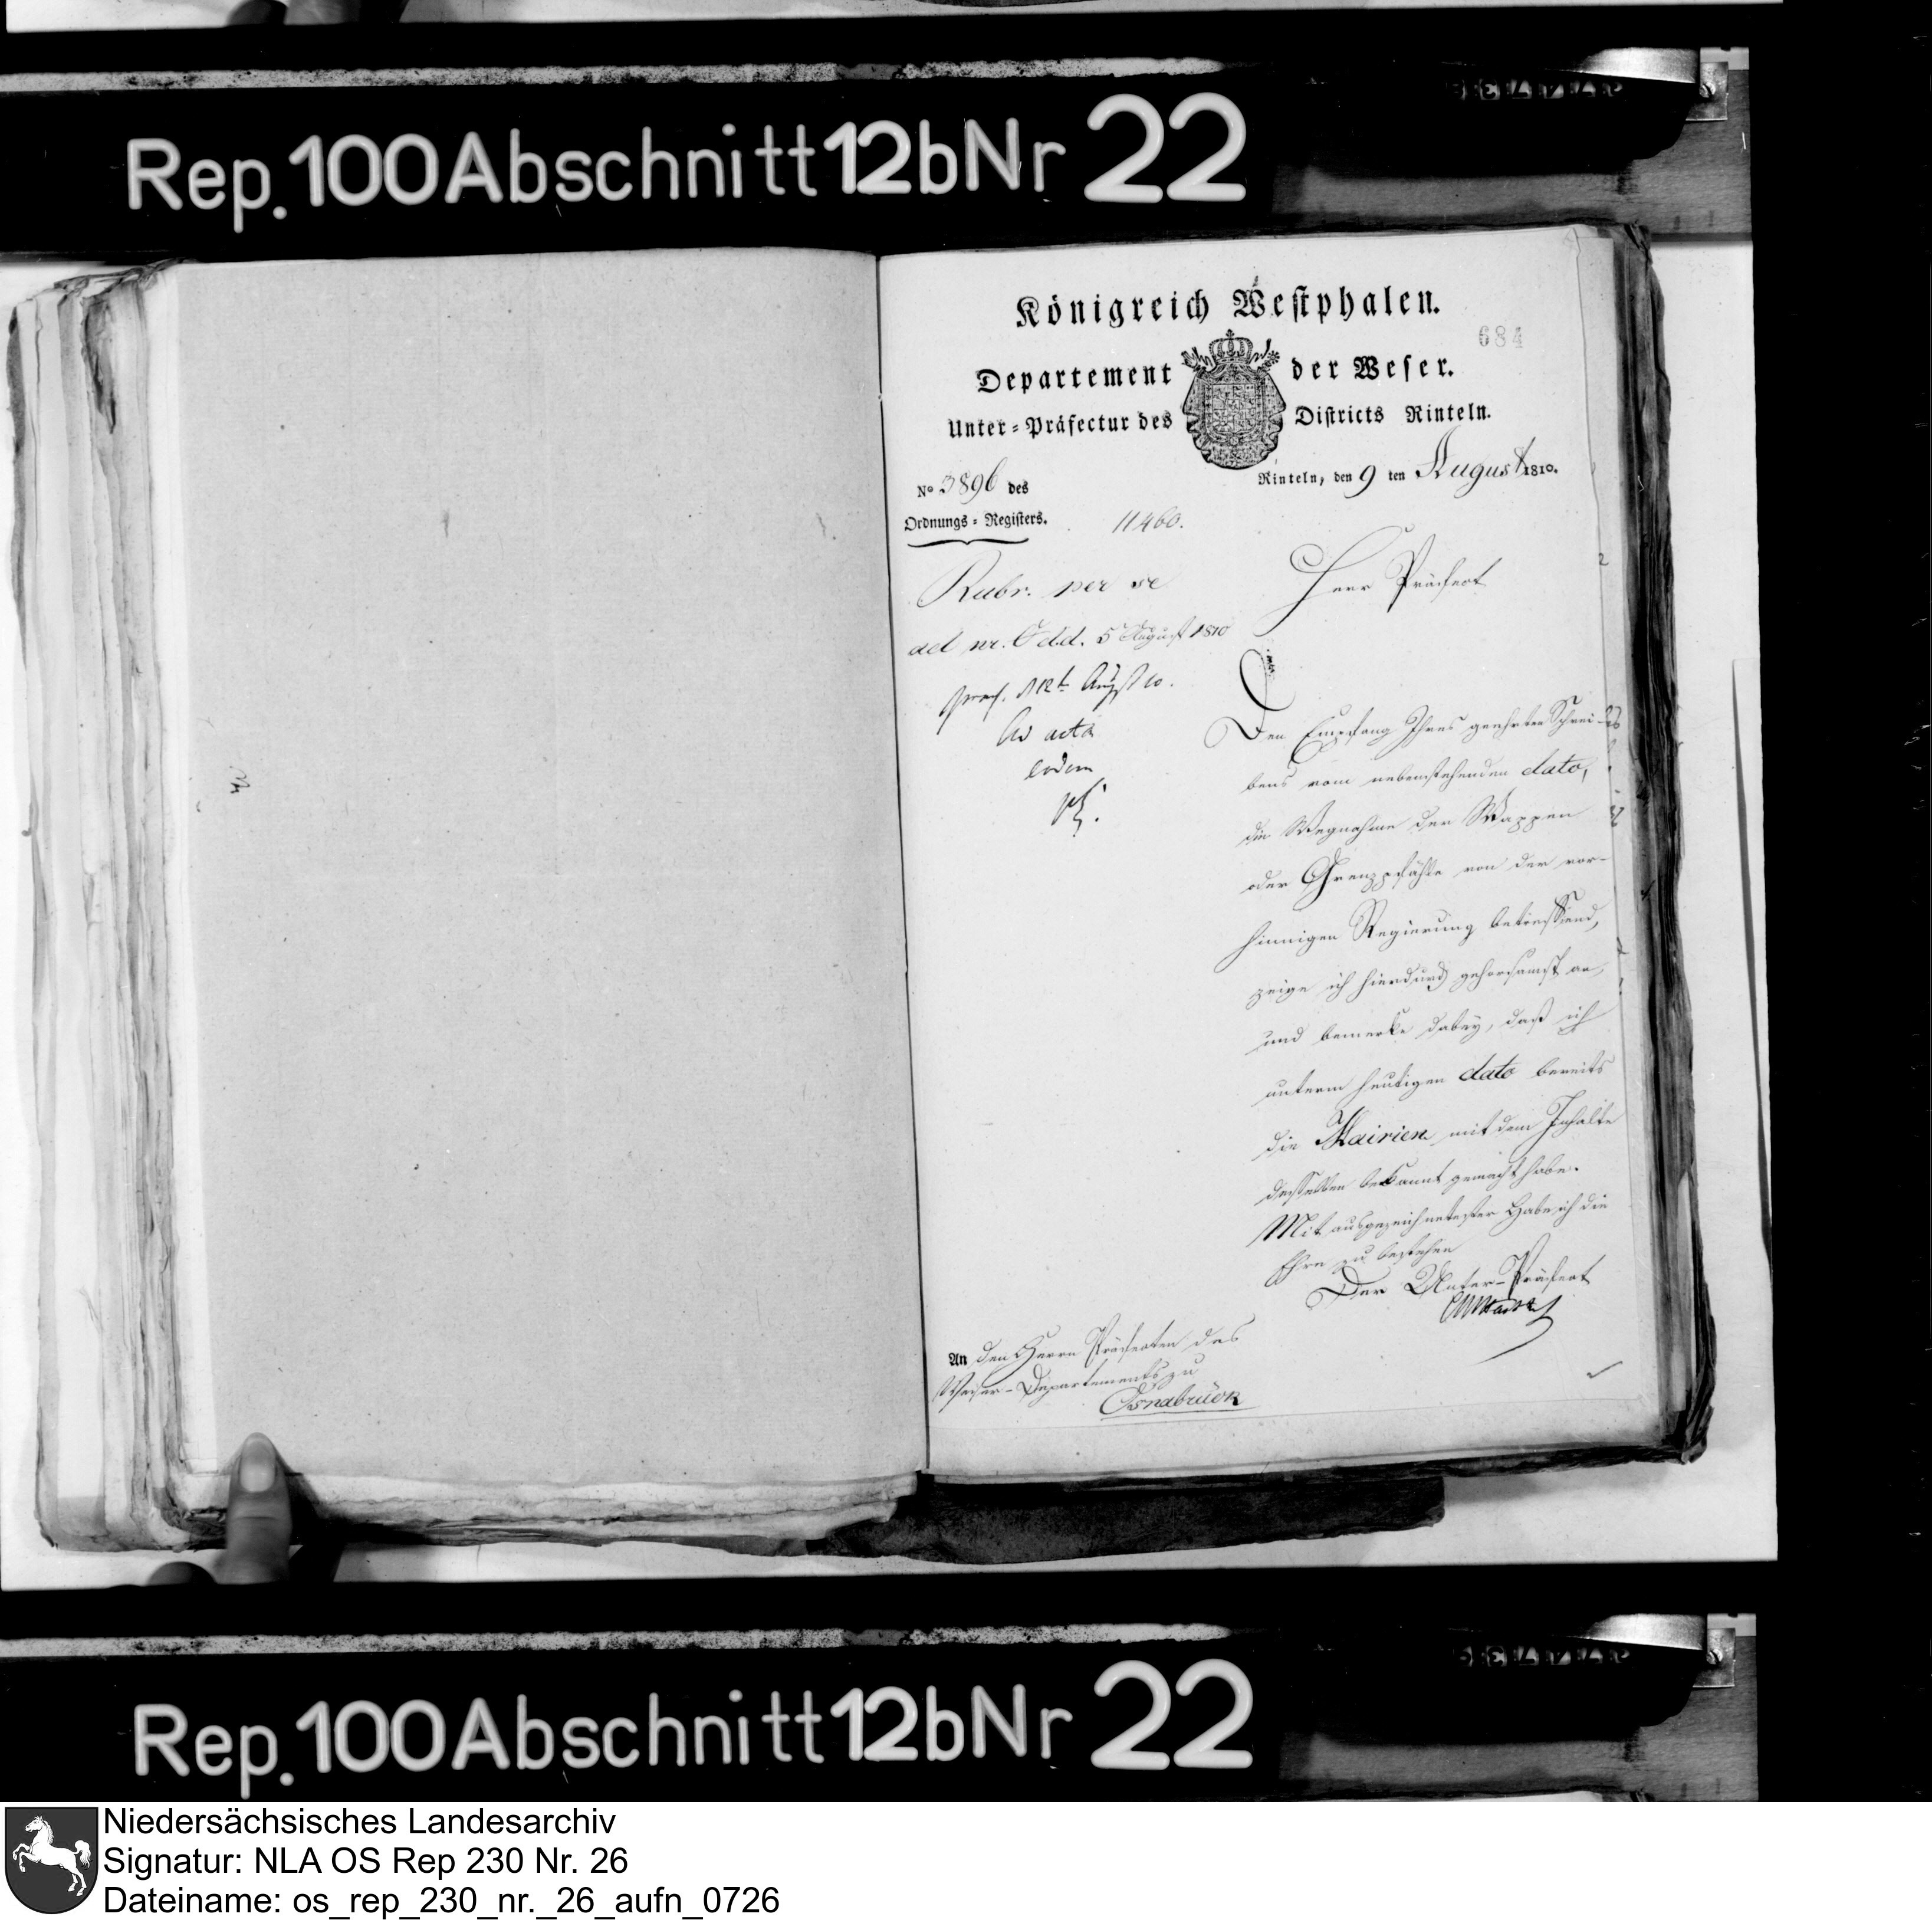 Rep. 100 Abschnitt 12b Nr 22
Königreich Westphalen.
684
Departement der Weser.
Unter-Präfectur des Districts Rinteln.
No 3896 des
Ordnungs-Registers.
Rinteln, den 9 ten August 1810.
11460.
Rubr. per se
ad nr. C d.d. 5 August 1810
praes. d 12t Augst 10.
Ad acta
eodem
Herr Präfect
Den Empfang Ihres geehrten Schrei-
bens vom nebenstehenden dato,
die Wegnahme der Wappen
oder Grenzpfähle von der vor-
hinnigen Regierung betreffend,
zeige ich hierdurch gehorsamst an,
und bemerke dabey, daß ich
unterm heutigen dato bereits
die Mairien mit dem Inhalte
desselben bekannt gemacht habe.
Mit ausgezeichnetester Habe ich die
Ehre zu bestehen
Der Unter-Präfect
An den Herrn Präfecten des
Weser-Departements zu
Osnabrück
Rep. 100 Abschnitt 12b Nr 22
Niedersächsisches Landesarchiv
Signatur: NLA OS Rep 230 Nr. 26
Dateiname: os_rep_230_nr._26_aufn_0726